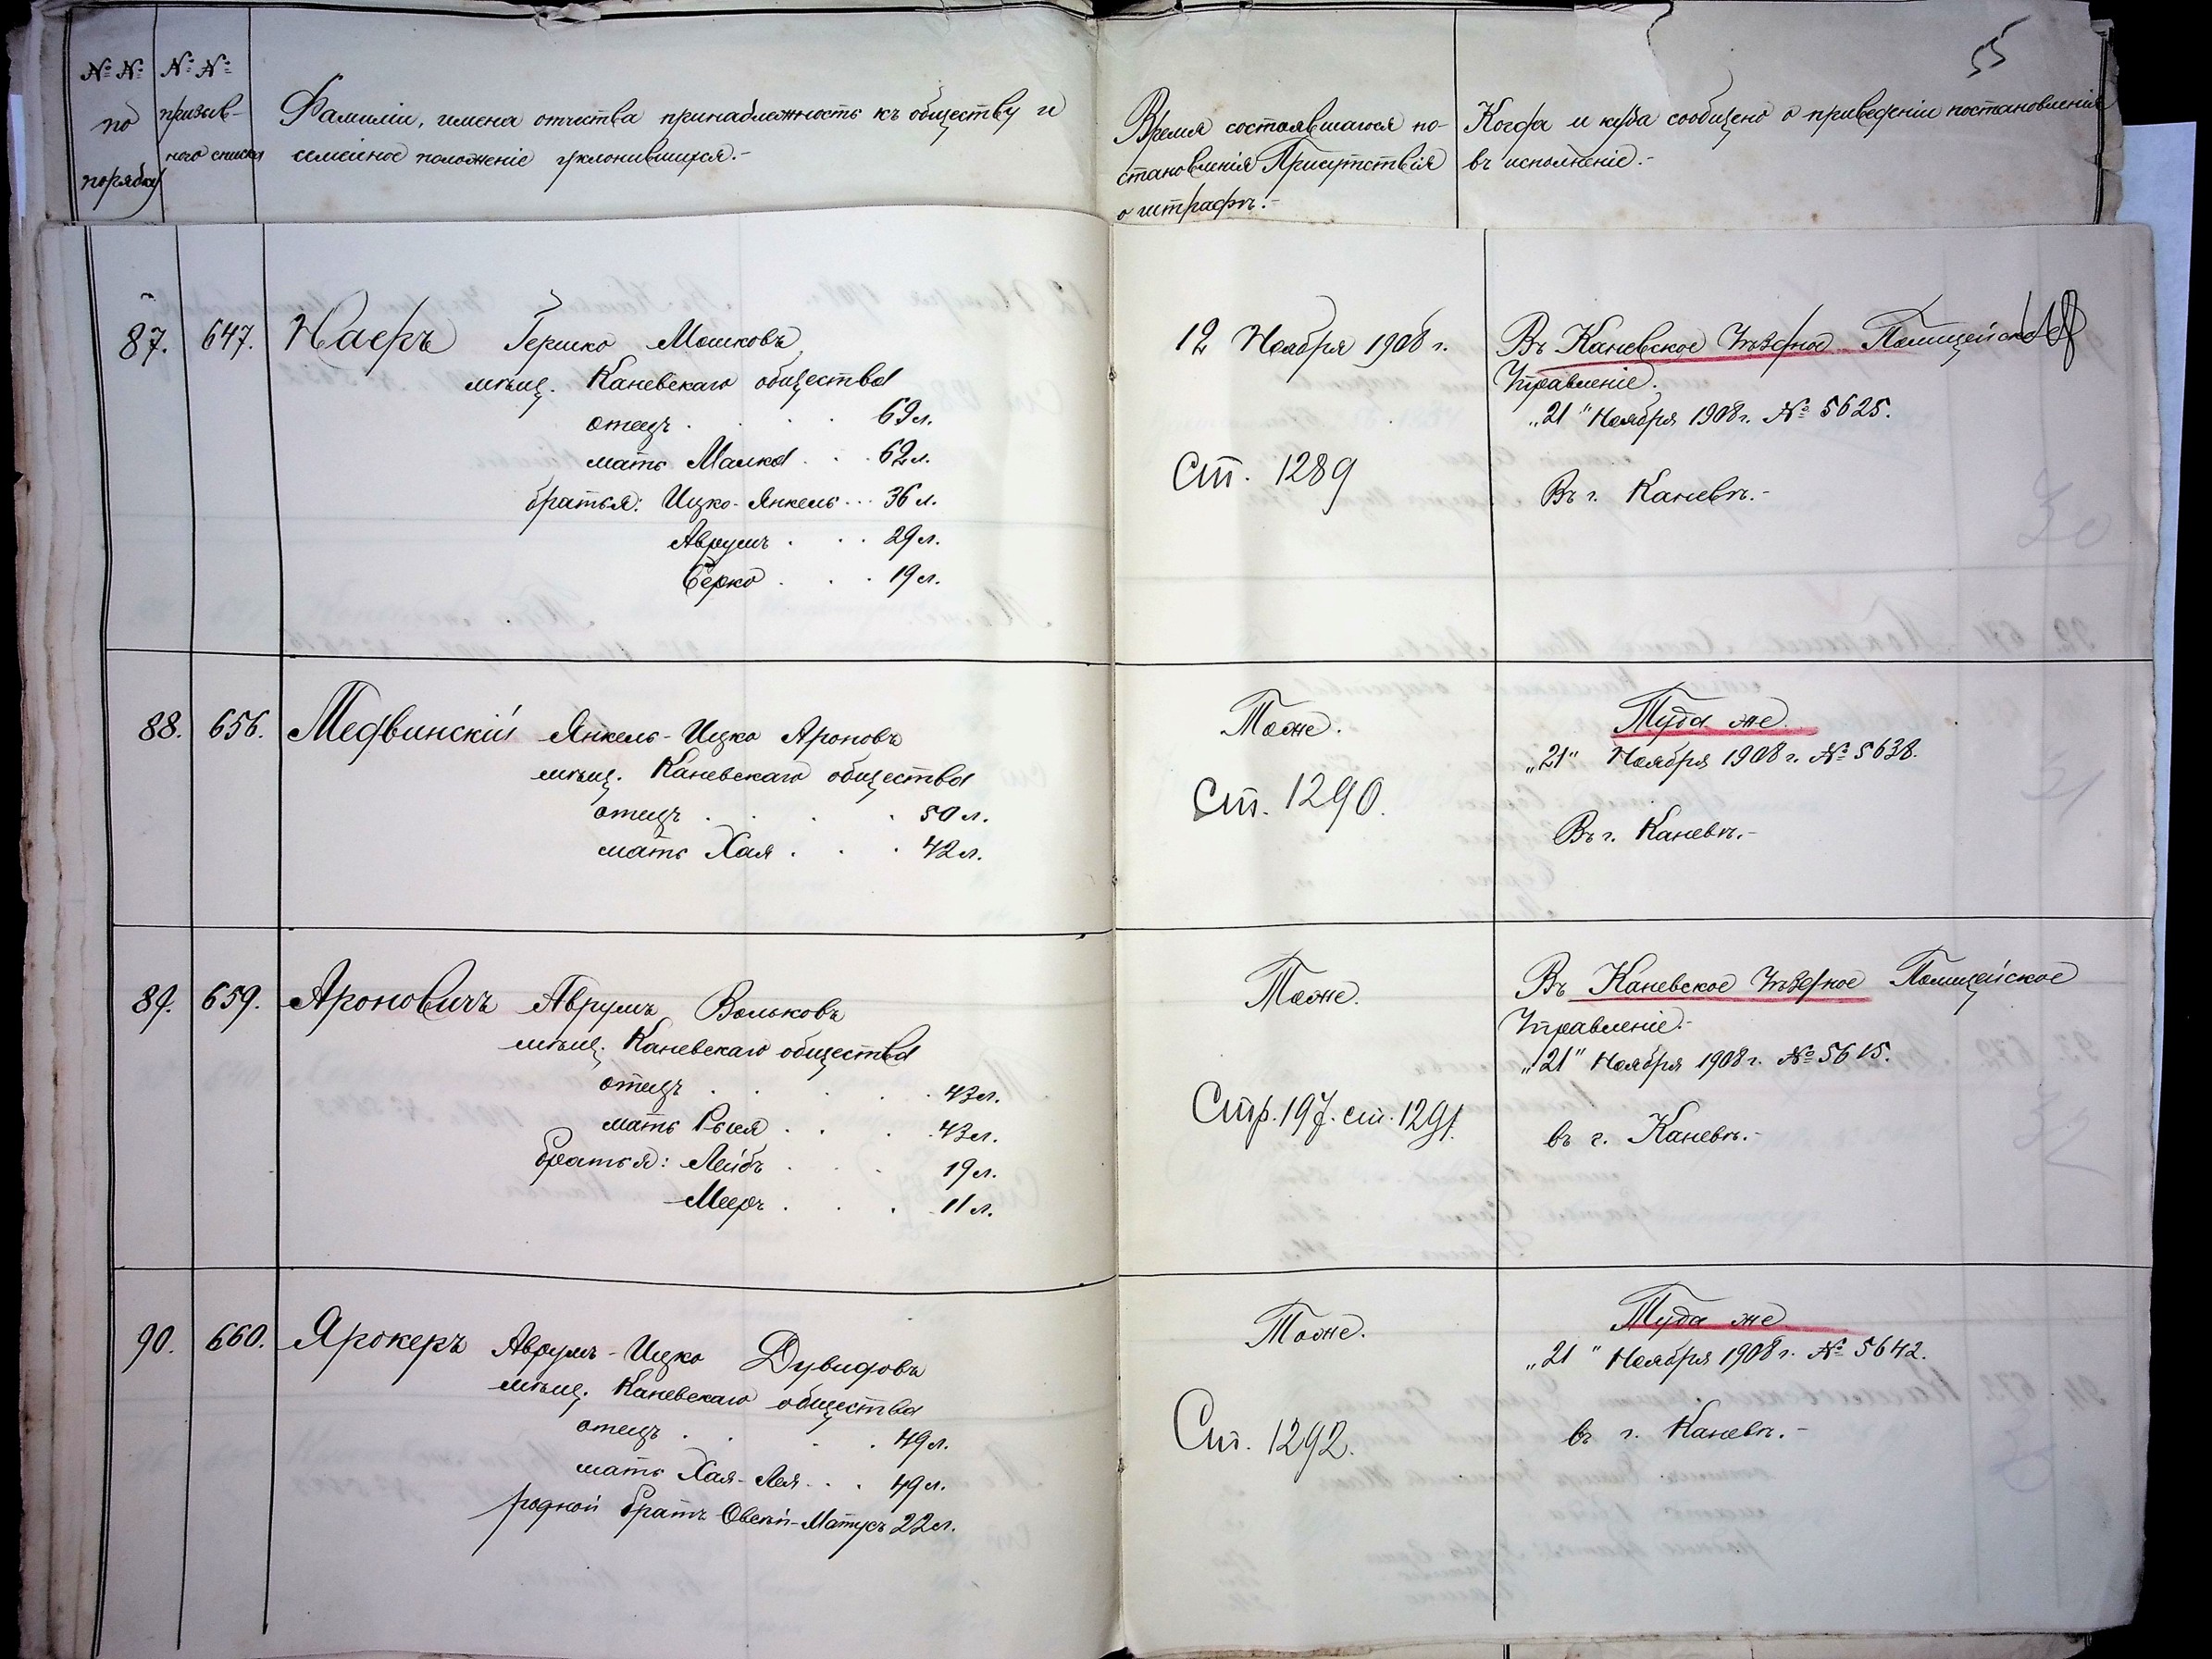 №№ по порядку
№№ призывного списка
Фамиліи, имена отчества принадлежность къ обществу и
семейное положеніе уклонившихся.-
Время состоявшагося по-
становленія Присутствія
о штрафѣ.-
Когда и куда сообщено о приведеніи постановленія
въ исполненіе.-
55
87. 647. Наеръ Гершко Мошковъ
мѣщ. Каневскаго общества
отецъ . . . 69 л.
мать Малка . . . 62 л.
братья: Ицко-Янкель... 36 л.
Аврумъ . . . 29 л.
Берко . . . 19 л.
12 Ноября 1908 г.
Ст. 1289
Въ Каневское Уѣздное Полицейское
Управленіе.
„21" Ноября 1908 г. № 5625.
Въ г. Каневѣ.-
88. 656. Медвинскій Янкель-Ицко Ароновъ
мѣщ. Каневскаго общества
отецъ . . . 50 л.
мать Хая . . . 42 л.
Тоже.
Ст. 1290.
Туда же
„21" Ноября 1908 г. № 5638.
Въ г. Каневѣ.-
89. 659. Ароновичъ Аврумъ Вольковъ
мѣщ. Каневскаго общества
отецъ . . . 43 л.
мать Рыся . . . 43 л.
братья: Лейбъ . . . 19 л.
Мееръ . . . 11 л.
Тоже.
Стр. 197. ст. 1291.
Въ Каневское Уѣздное Полицейское
Управленіе.-
„21" Ноября 1908 г. № 5615.
въ г. Каневѣ.-
90. 660. Ярокеръ Аврумъ-Ицко Дувидовъ
мѣщ. Каневскаго общества
отецъ . . . 49 л.
мать Хая-Лея . . . 49 л.
родной братъ Овсѣй-Матусъ 22 л.
Тоже.
Ст. 1292.
Туда же
„21" Ноября 1908 г. № 5642.
въ г. Каневѣ.-